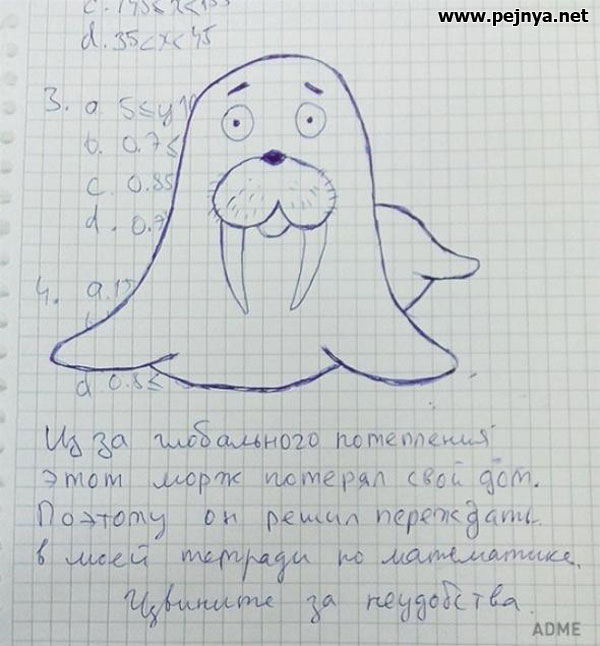 www.pejnya.net
d. 35<x<45
3. a. 5≤y
b. 0.7≤
c. 0.85
d. 0.7
4. a.
d 0.8≤
Из за глобального потепления
этот морж потерял свой дом.
Поэтому он решил переждать
в моей тетради по математике.
Извините за неудобства.
ADME